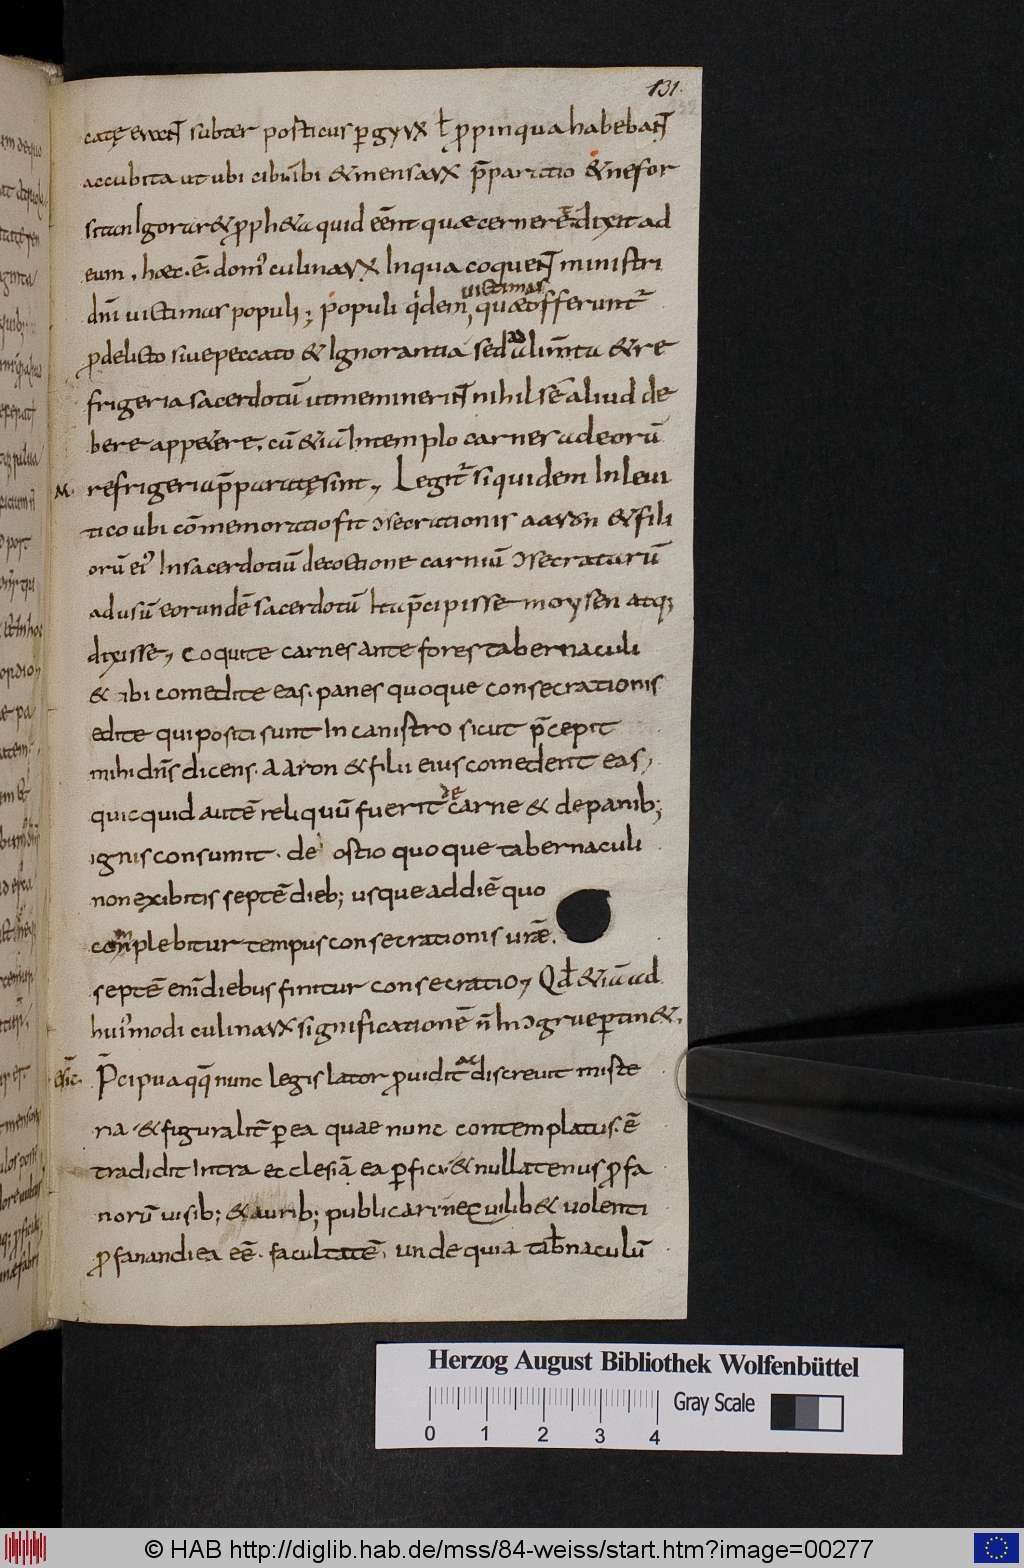 131
catę erant subter posticus ꝑ gyrū ꝉ ꝓpinqua habebant
accubita ut ubi cib; ibi & mensarū p̄paratio & ne for
sitan Ignorar& ꝓph&a quid eēnt quae cerner& dixit ad
eum. haec. ē. dom' culinarū In qua coquent ministri
dn̄i uictimas populi; populi q̇dem uictimas, quae offerunt᷑
ꝓ delicto siue peccato & Ignorantia sed ad alim̄ta & re
frigeria sacerdotū ut meminerint nihil sē aliud de
bere appetere. cū & iā In templo carnes ad eorū
M. refrigeria p̄paratę sint, Legit᷑ siquidem In leui
tico ubi cōmemoratio fit ɔsecrationis aaron & fili
orū ei' In sacerdotiū de coctione carniū ɔsecratarū
ad usū eorundē sacerdotū Ita p̄cipisse moysen atq;
dixisse, Coquite carnes ante fores tabernaculi
& ibi comedite eas. panes quoque consecrationis
edite qui positi sunt In canistro sicut p̄cepit
mihi dn̄s dicens. Aaron & filii eius comederit eas,
quicquid autē reliquū fuerit de carne & de panib;
ignis consumit. de ostio quoque tabernaculi
non exibitis septē dieb; usque ad diē quo
complebitur tempus consecrationis urāe.
septē eni diebus finitur consecratio, Qd̄ & iā ad
hui'modi culinarū significationē n̄ Inɔgrue ꝑtin&.
Esic. P̄cipua qq̄ nunc legislator ꝓuidit ac discreuit miste
ria. & figuralit̄ ꝑ ea quae nunc contemplatus. ē
tradidit Intra ecclesiā ea ꝑfici & nullatenus ꝓfa
norū uisib; & aurib; publicari nec uilib& uolenti
ꝓfanandi ea eē. facultatē. unde quia tab̄naculū
Herzog August Bibliothek Wolfenbüttel
Gray Scale
0 1 2 3 4
© HAB http://diglib.hab.de/mss/84-weiss/start.htm?image=00277